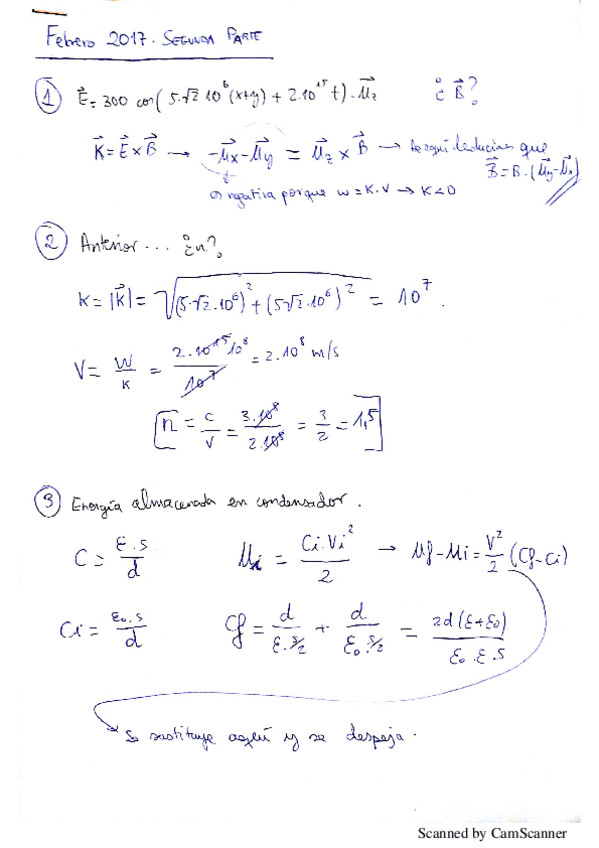 Febrero 2017. SEGUNDA PARTE
① E⃗ = 300 cos(5·√2 10⁶(x+y) + 2·10¹⁵ t)·μ⃗z ¿B⃗?
K⃗ = E⃗ × B⃗ → -μ⃗x - μ⃗y = μ⃗z × B⃗ → de aquí deducimos que
B⃗ = B·(μ⃗y - μ⃗x)
es negativa porque w = K·V → K<0
② Anterior... ¿n?
K = |K⃗| = √((5·√2·10⁶)² + (5√2·10⁶)²) = 10⁷.
V = W/K = 2·10¹⁵ 10⁸/10⁷ = 2·10⁸ m/s
[n = c/V = 3·10⁸/2·10⁸ = 3/2 = 1,5]
③ Energía almacenada en condensador.
C = ε·s/d μi = Ci·Vi²/2 → μf - μi = V²/2 (Cf - Ci)
Ci = ε₀·s/d Cf = d/ε·s/2 + d/ε₀·s/2 = 2d(ε+ε₀)/ε₀·ε·s
Se sustituye aquí y se despeja.
Scanned by CamScanner